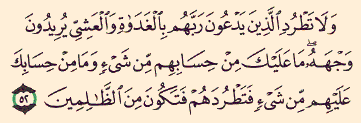 وَلَا تَطْرُدِ ٱلَّذِينَ يَدْعُونَ رَبَّهُم بِٱلْغَدَوٰةِ وَٱلْعَشِىِّ يُرِيدُونَ
وَجْهَهُۥ ۖ مَا عَلَيْكَ مِنْ حِسَابِهِم مِّن شَىْءٍ وَمَا مِنْ حِسَابِكَ
عَلَيْهِم مِّن شَىْءٍ فَتَطْرُدَهُمْ فَتَكُونَ مِنَ ٱلظَّـٰلِمِينَ ٥٢